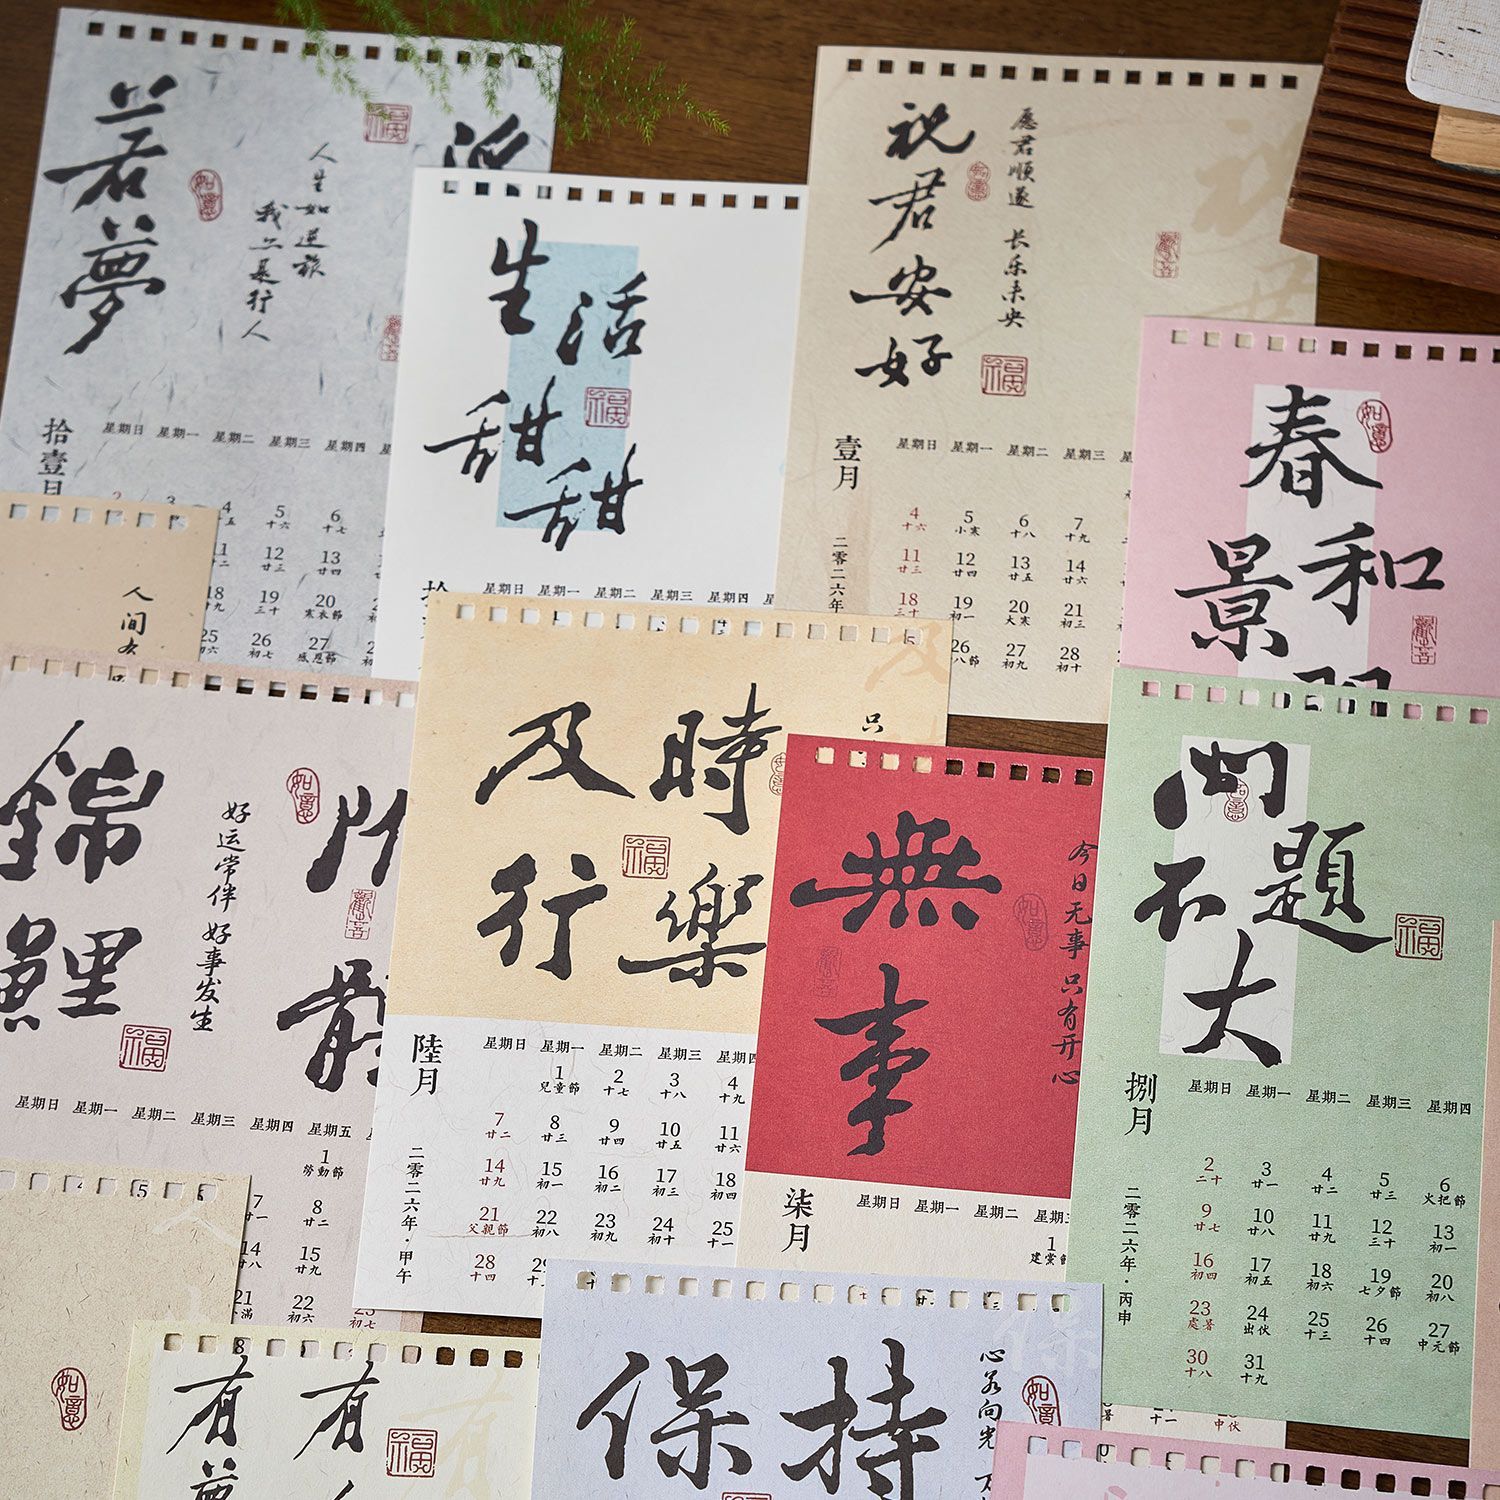 若夢
浮
福
如意
人生如逆旅
我亦是行人
觀音
拾壹月
星期日 星期一 星期二 星期三 星期四
2 3 4 5 6
十五 十六 十七
11 12 13
廿三 廿四
18 19 20
三十 寒衣節
25 26 27
初六 初七 感恩節
生活
甜甜
福
星期日 星期一 星期二 星期三 星期四
祝君安好
愿君顺遂 长乐未央
如意
觀音
福
壹月
二零二六年
星期日 星期一 星期二 星期三
4 5 6 7
十六 小寒 十八 十九
11 12 13 14
廿三 廿四 廿五 廿六
18 19 20 21
三十 初一 大寒 初三
26 27 28
初九 初十
春和
景
如意
觀音
人间
錦鯉
附體
好运常伴 好事发生
如意
觀音
福
星期日 星期一 星期二 星期三 星期四 星期五
1
勞動節
7 8
廿一 廿二
14 15
廿八 廿九
21 22 23
初六 初七
及時
行樂
只
福
陸月
二零二六年·甲午
星期日 星期一 星期二 星期三 星期四
1 2 3 4
兒童節 十七 十八 十九
7 8 9 10 11
廿二 廿三 廿四 廿五 廿六
14 15 16 17 18
廿九 初一 初二 初三 初四
21 22 23 24 25
父親節 初八 初九 初十 十一
28
十四
無事
今日无事 只有开心
如意
觀音
柒月
星期日 星期一 星期二 星期三
1
建黨節
問題
不大
如意
福
捌月
二零二六年·丙申
星期日 星期一 星期二 星期三 星期四
2 3 4 5 6
二十 廿一 廿二 廿三 火把節
9 10 11 12 13
廿七 廿八 廿九 三十 初一
16 17 18 19 20
初四 初五 初六 七夕節 初八
23 24 25 26 27
處暑 出伏 十三 十四 中元節
30 31
十八 十九
如意
有有
夢
福
保持
心若向光
如意
中伏